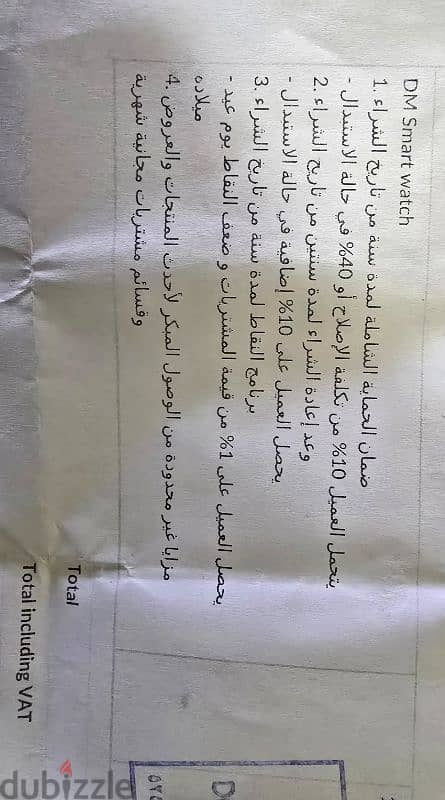 DM Smart watch
1. ضمان الحماية الشاملة لمدة سنة من تاريخ الشراء
- يتحمل العميل 10% من تكلفة الإصلاح أو 40% في حالة الاستبدال
2. وعد إعادة الشراء لمدة سنتين من تاريخ الشراء
- يحصل العميل على 10% إضافية في حالة الاستبدال
3. برنامج النقاط لمدة سنة من تاريخ الشراء
- يحصل العميل على 1% من قيمة المشتريات وضعف النقاط يوم عيد
ميلاده
4. مزايا غير محدودة من الوصول المبكر لأحدث المنتجات والعروض
وقسائم مشتريات مجانية شهرية
Total
Total including VAT
dubizzle